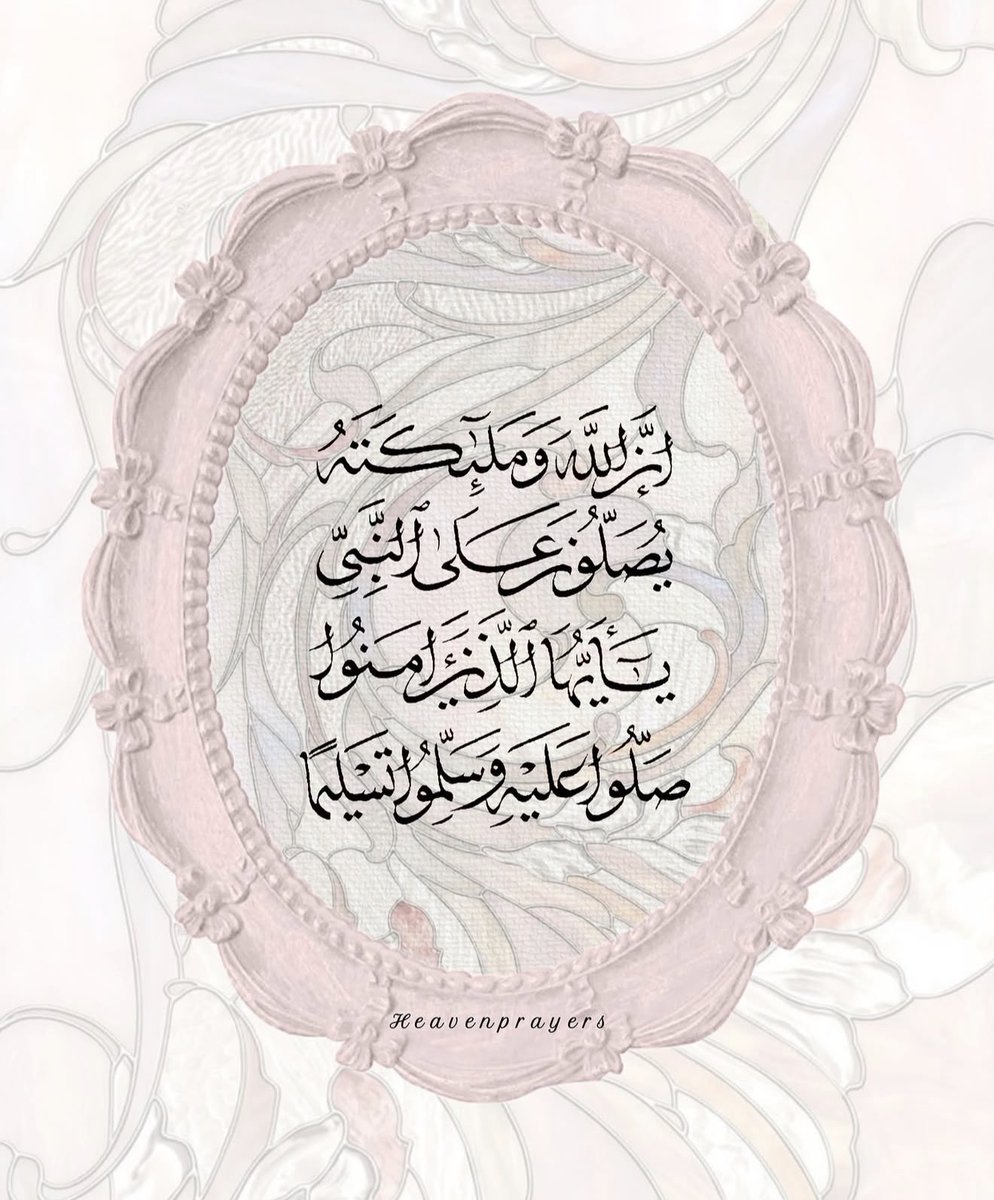 إِنَّ اللَّهَ وَمَلَٰٓئِكَتَهُ
يُصَلُّونَ عَلَى ٱلنَّبِيِّ
يَٰٓأَيُّهَا ٱلَّذِينَ ءَامَنُوا
صَلُّوا عَلَيْهِ وَسَلِّمُوا تَسْلِيمًا
Heavenprayers